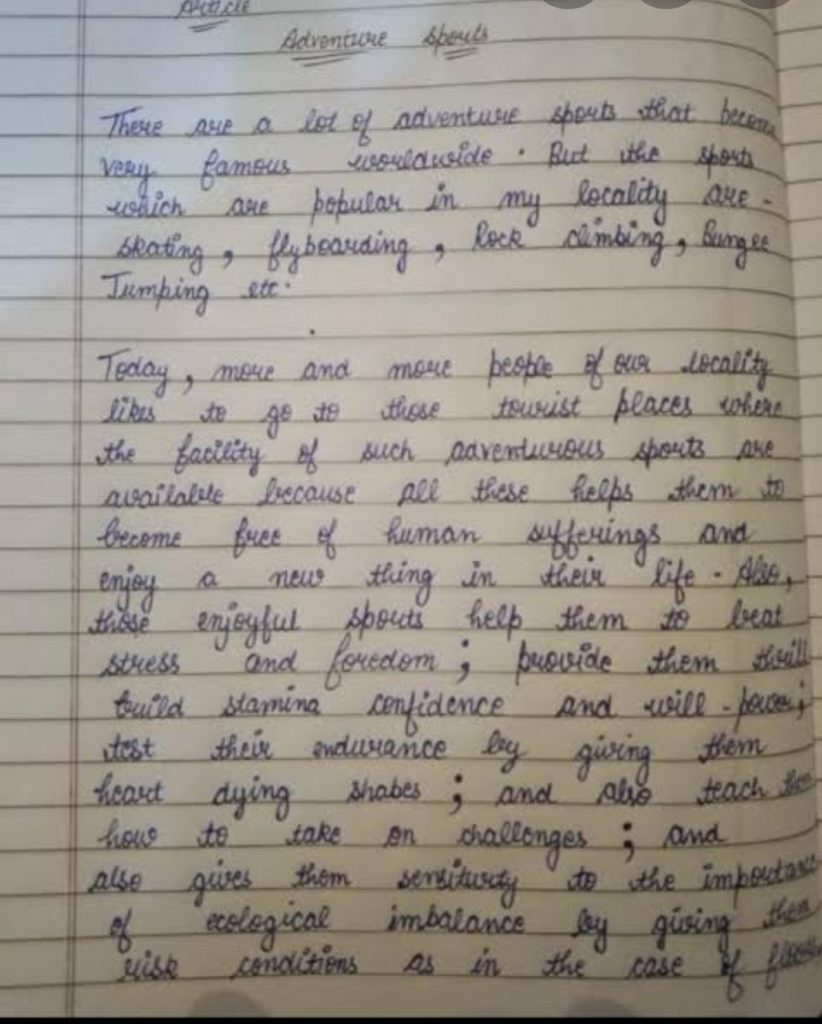 Article
Adventure Sports
There are a lot of adventure sports that become
very famous worldwide. But the sports
which are popular in my locality are -
skating, flyboarding, Rock climbing, Bungee
Jumping etc.
Today, more and more people of our locality
likes to go to those tourist places where
the facility of such adventurous sports are
available because all these helps them to
become free of human sufferings and
enjoy a new thing in their life. Also,
those enjoyful sports help them to beat
stress and foredom; provide them thrill
build stamina confidence and will-power;
test their endurance by giving them
heart dying shabes; and also teach them
how to take on challenges; and
also gives them sensiturity to the importance
of ecological imbalance by giving them
risk conditions as in the case of